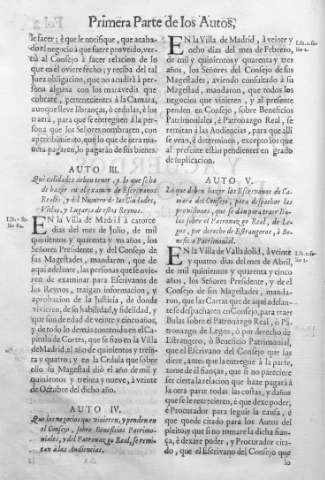 Primera Parte de los Autos,
le facer; è que le notifique, que acaba-
do el negocio à que fuere proveido, ver-
nà al Consejo à facer relacion de lo
que en el oviere fecho; y reciba del tal
Juez obligacion, que no acudirà à per-
sona alguna con los maravedis que
cobrare, pertenecientes à la Camara,
aunque lleve libranças, ò cedulas, à los
traerà, para que se entreguen à la per-
sona que los Señores nombraren, con
apercibimiento, que lo que de otra ma-
nera pagaren, lo pagaràn de sus bienes.
AUTO III.
Què calidades deben tener, y lo que se ha
de hazer en el examen de Escrivanos
Reales, y del Numero de las Ciudades,
Villas, y Lugares de estos Reynos.
EN la Villa de Madrid à catorce
dias del mes de Julio, de mil
quinientos y quarenta y un años, los
Señores Presidente, y del Consejo de
sus Magestades, mandaron, que de
aqui adelante, las personas que se ovie-
ren de examinar para Escrivanos de
los Reynos, traigan informacion, y
aprobacion de la Justicia, de donde
vivieren, de su habilidad, y fidelidad, y
que son de edad de veinte y cinco años,
y de todo lo demàs contenido en el Ca-
pitulo de Cortes, que se fizo en la Villa
de Madrid, el año de quinientos y trein-
ta y quatro, y en la Cedula que sobre
ello su Magestad diò el año de mil y
quinientos y treinta y nueve, à veinte
de Octubre del dicho año.
AUTO IV.
Que los negocios que vinieren, y penden en
el Consejo, sobre Beneficios Patrimo-
niales, y del Patronazgo Real, se remi-
tan à las Audiencias.
EN la Villa de Madrid, à veinte y
ocho dias del mes de Febrero,
de mil y quinientos y quarenta y tres
años, los Señores del Consejo de sus
Magestades, aviendo consultado à su
Magestad, mandaron, que todos los
negocios que vinieren, y al presente
penden en Consejo, sobre Beneficios
Patrimoniales, è Patronazgo Real, se
remitan à las Audiencias, para que alli
se vean, è determinen, excepto los que
de presente estàn pendientes en grado
de suplicacion.
AUTO V.
Lo que deben hazer los Escrivanos de Ca-
mara del Consejo, para despachar las
provisiones, que se dàn para traer Bu-
las sobre el Patronazgo Real, de Le-
gos, por derecho de Estrangeros, ò Be-
neficio Patrimonial.
EN la Villa de Valladolid, à veinte
y quatro dias del mes de Abril,
de mil quinientos y quarenta y cinco
años, los Señores Presidente, y de el
Consejo de sus Magestades, manda-
ron, que las Cartas que de aqui adelan-
te se despacharen en Consejo, para traer
Bulas sobre el Patronazgo Real, ò Pa-
tronazgo de Legos, ò por derecho de
Estrangero, ò Beneficio Patrimonial,
que el Escrivano del Consejo que las
diere, antes que la entregue à la parte,
tome de èl fianças, que si no pareciere
ser cierta la relacion que haze pagarà à
la otra parte todas las costas, y daños
que se le recrecieren, è que dexe poder,
è Procurador para seguir la causa, è
que quede citado para los Autos del
pleito, y que si no tomare la dicha fian-
ça, ò dexare poder, y Procurador cita-
do, que el Escrivano del Consejo que